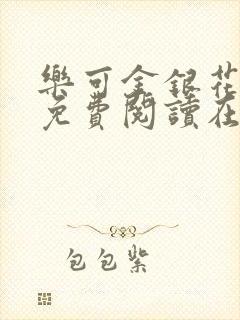 樂可金銀花
免費閱讀在
包包紫